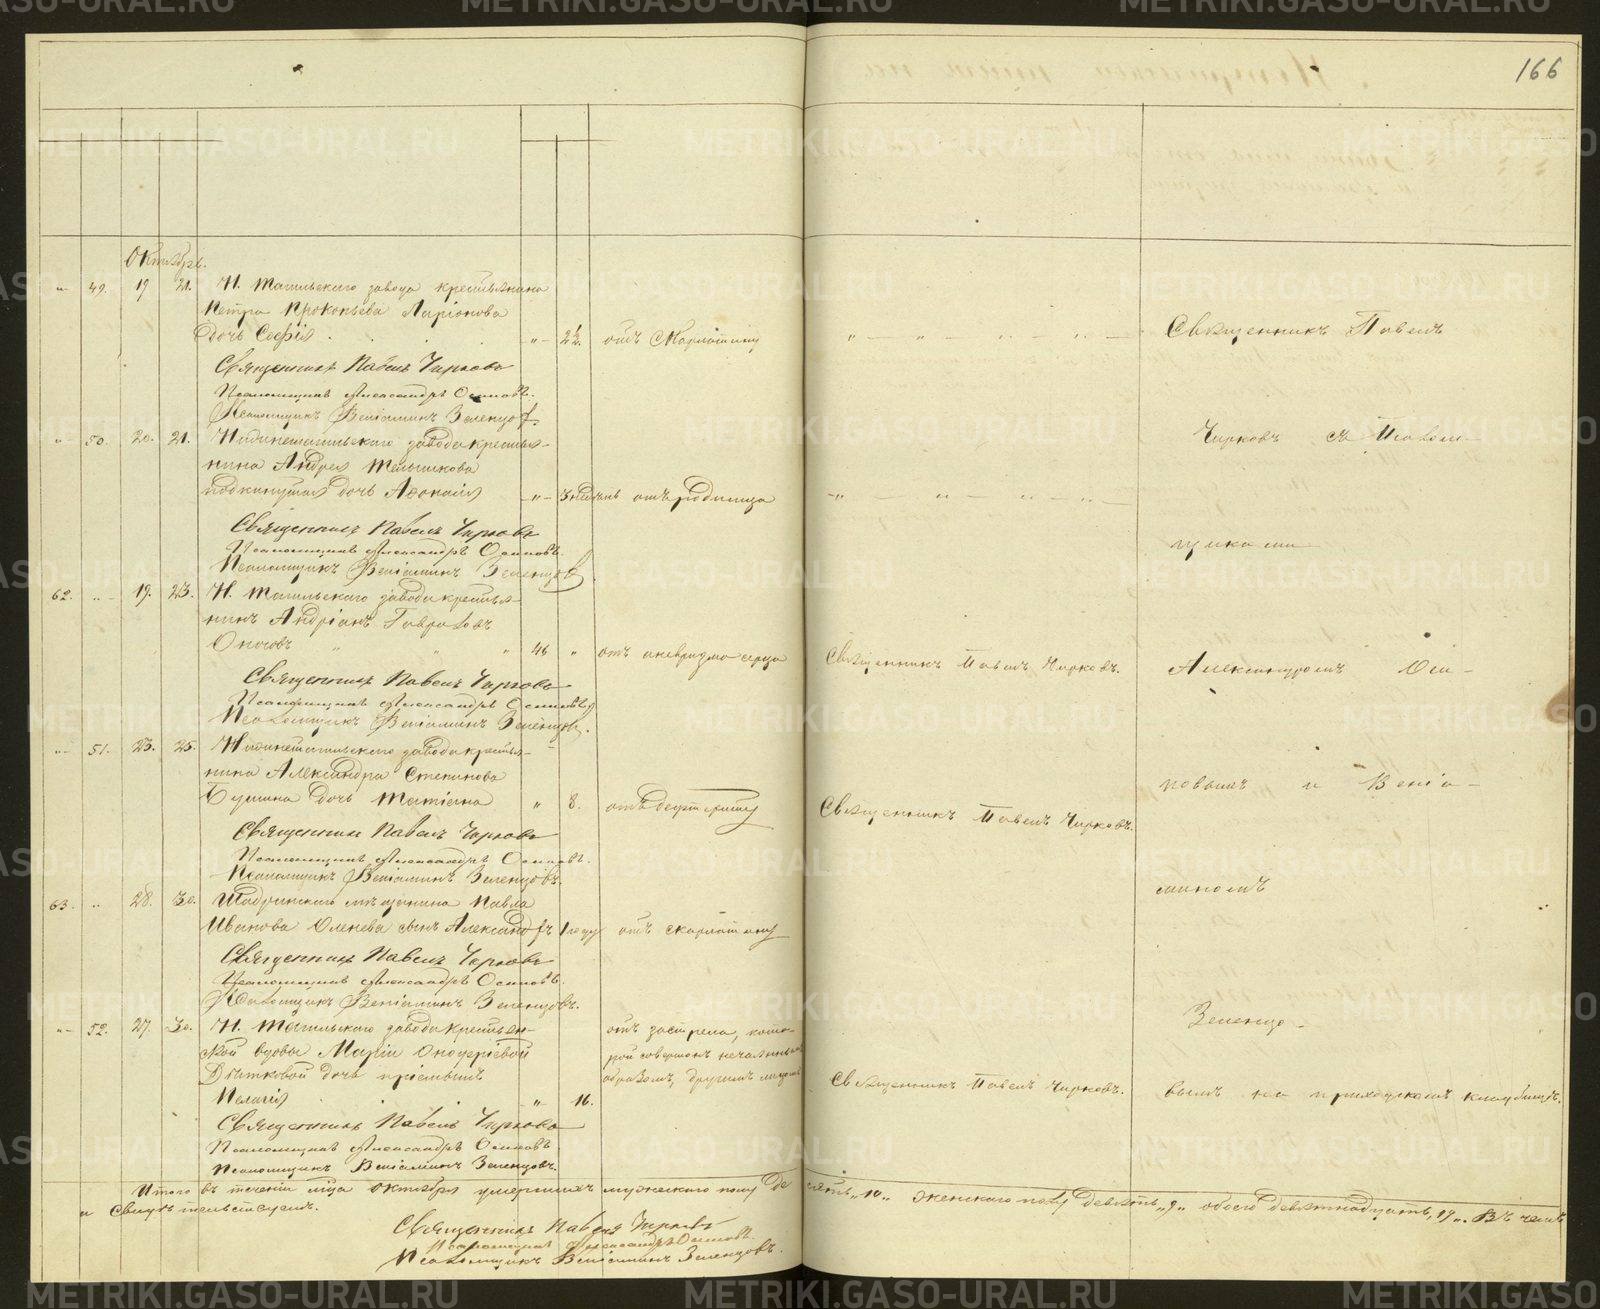 166
Октябрь.
„ 49. 19 21. Н. Тагильскаго завода крестьянина
Петра Прокопьева Ларіонова
дочь Софія „ 2½. отъ скарлатины Священникъ Павелъ
Священникъ Павелъ Чирковъ
Псаломщикъ Александръ Осиповъ.
Псаломщикъ Веніаминъ Зеленцов.
„ 50. 20. 21. Нижнетагильскаго завода крестья- Чирковъ съ Псалом-
нина Андрея Мельникова
подкинутая дочь „ 3 отъ родимца
Священникъ Павелъ Чирковъ щиками
Псаломщикъ Александръ Осиповъ.
Псаломщикъ Веніаминъ Зеленцов
62. „ 19. 23. Н. Тагильскаго завода крестья-
нинъ Андріанъ Гавриловъ
„ 46 „ отъ аневризма сердца Священникъ Павелъ Чирковъ. Александромъ Оси-
Священникъ Павелъ Чирковъ
Псаломщикъ Александръ Осиповъ
Псаломщикъ Веніаминъ Зеленцов.
„ 51. 23. 25. Нижнетагильскаго завода крестья-
нина Александра Степанова повымъ и Веніа-
дочь Татіана „ 8. отъ Священникъ Павелъ Чирковъ.
Священникъ Павелъ Чирковъ
Псаломщикъ Александръ Осиповъ.
Псаломщикъ Веніаминъ Зеленцовъ. миномъ
63. „ 28. 30. Шадринскаго мѣщанина Павла
Иванова Оленева сынъ Александръ 1 году отъ скарлатины
Священникъ Павелъ Чирковъ
Псаломщикъ Александръ Осиповъ.
Псаломщикъ Веніаминъ Зеленцовъ.
„ 52. 27. 30. Н. Тагильскаго завода крестьян- отъ застрела, кото- Зеленцо-
ской вдовы Маріи рой совершонъ нечаяннымъ
дочь пріемышъ образомъ, другимъ лицомъ Священникъ Павелъ Чирковъ. вымъ на приходскомъ кладбищѣ.
Пелагія „ 16.
Священникъ Павелъ Чирковъ
Псаломщикъ Александръ Осиповъ
Псаломщикъ Веніаминъ Зеленцовъ.
Итого въ теченіи м-ца Октября умершихъ мужескаго полу десять „10„ женскаго полу девять „9„ обоего девятнадцать „19„. Въ чемъ
и свидѣтельствуемъ.
Священникъ Павелъ Чирковъ
Псаломщикъ Александръ Осиповъ.
Псаломщикъ Веніаминъ Зеленцовъ.
METRIKI.GASO-URAL.RU